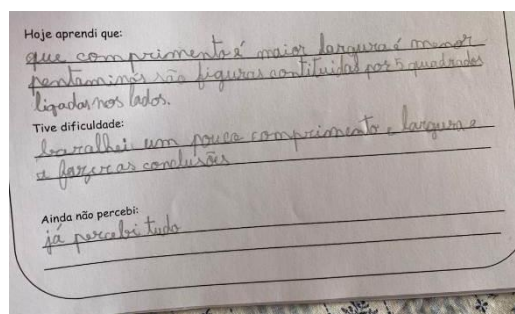 Hoje aprendi que:
que comprimento é maior largura é menor
pentaminós são figuras contituidas por 5 quadrados
ligadas nos lados.
Tive dificuldade:
baralhei um pouco comprimento e largura e
a fazer as conclusões
Ainda não percebi:
já percebi tudo